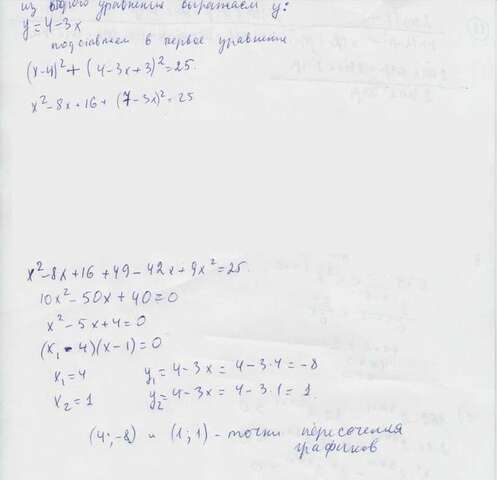 из второго уравнения выражаем y:
y = 4-3x
подставляем в первое уравнение
(x-4)²+(4-3x+3)²=25.
x²-8x+16+(7-3x)²=25
x²-8x+16+49-42x+9x²=25.
10x²-50x+40=0
x²-5x+4=0
(x-4)(x-1)=0
x₁=4 y₁=4-3x=4-3·4=-8
x₂=1 y₂=4-3x=4-3·1=1.
(4;-8) и (1;1) - точки пересечения
графиков